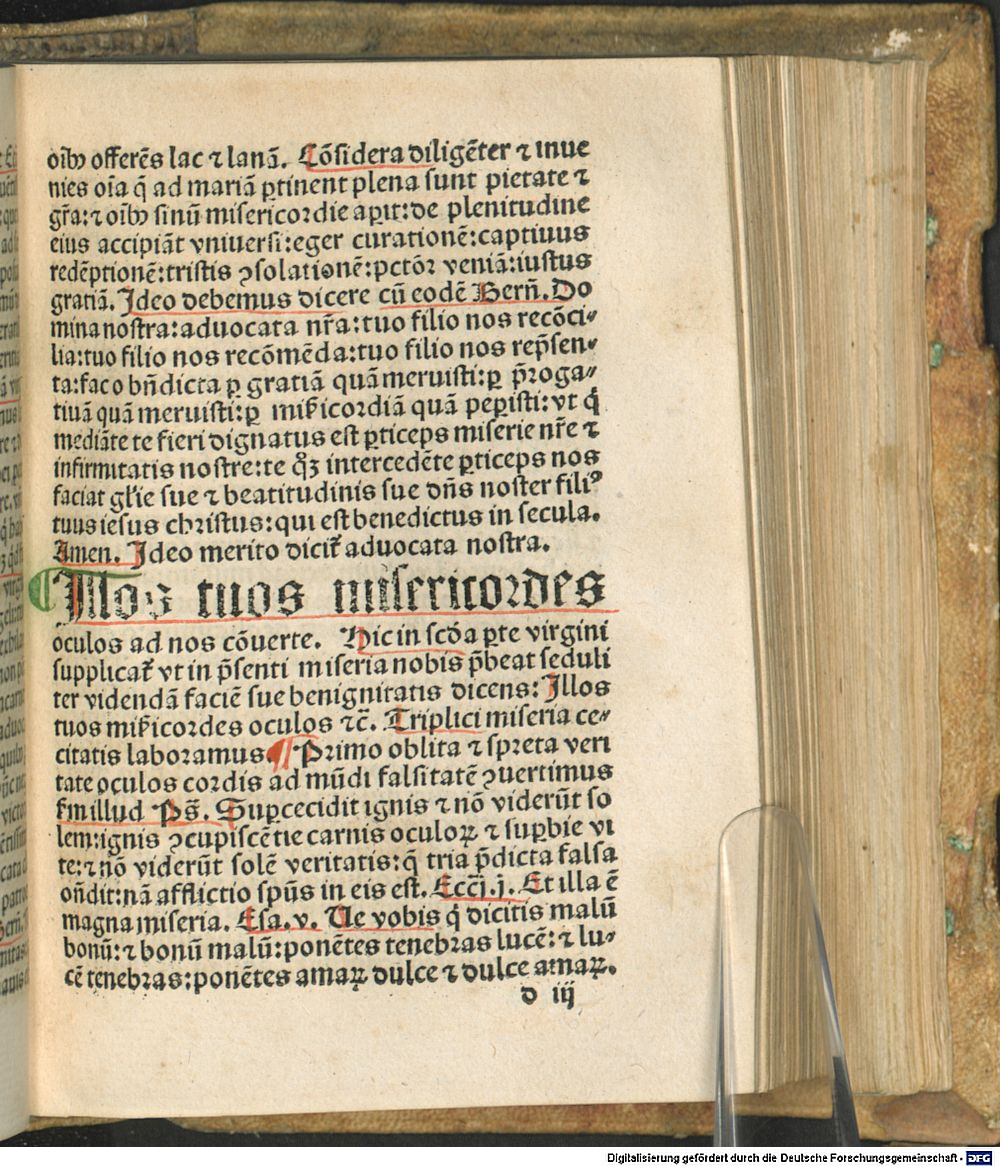 oībꝰ offerēs lac ⁊ lanā. Cōsidera diligēter ⁊ inue
nies oīa q̄ ad mariā ꝑtinent plena sunt pietate ⁊
gr̄a: ⁊ oībꝰ sinū misericordie aꝑit: de plenitudine
eius accipiāt vniuersi: eger curationē: captiuus
redēptionē: tristis ꝯsolationē: pctōꝛ veniā: iustus
gratiā. Ideo debemus dicere cū eodē Bern̄. Do
mina nostra: aduocata nr̄a: tuo filio nos recōci⸗
lia: tuo filio nos recōmēda: tuo filio nos rep̄sen⸗
ta: fac o bn̄dicta ꝑ gratiā quā meruisti: ꝑ p̄roga⸗
tiuā quā meruisti: ꝑ mīs̄icordiā quā peꝑisti: vt q̇
mediāte te fieri dignatus est ꝑticeps miserie nr̄e ⁊
infirmitatis nostre: te qꝫ intercedēte ꝑticeps nos
faciat gl̄ie sue ⁊ beatitudinis sue dn̄s noster filiꝰ
tuus iesus christus: qui est benedictus in secula.
Amen. Ideo merito dicit̄ aduocata nostra.
Illos tuos misericordes
oculos ad nos cōuerte. Hic in scd̄a ꝑte virgini
supplicat̄ vt in p̄senti miseria nobis p̄beat seduli
ter videndā faciē sue benignitatis dicens: Illos
tuos mīs̄icordes oculos ⁊c̄. Triplici miseria ce⸗
citatis laboramus. ¶ Primo oblita ⁊ spreta veri
tate oculos cordis ad mūdi falsitatē ꝯuertimus
s̄m illud Ps̄. Suꝑcecidit ignis ⁊ nō viderūt so
lem: ignis ꝯcupiscētie carnis oculoꝝ ⁊ suꝑbie vi
te: ⁊ nō viderūt solē veritatis: q̄ tria p̄dicta falsa
oñdit: nā afflictio spūs in eis est. Eccī. j. Et illa ē
magna miseria. Esa. v. Ue vobis q̇ dicitis malū
bonū: ⁊ bonū malū: ponētes tenebras lucē: ⁊ lu⸗
cē tenebras: ponētes amaꝝ dulce ⁊ dulce amaꝝ.
d iij
Digitalisierung gefördert durch die Deutsche Forschungsgemeinschaft - DFG